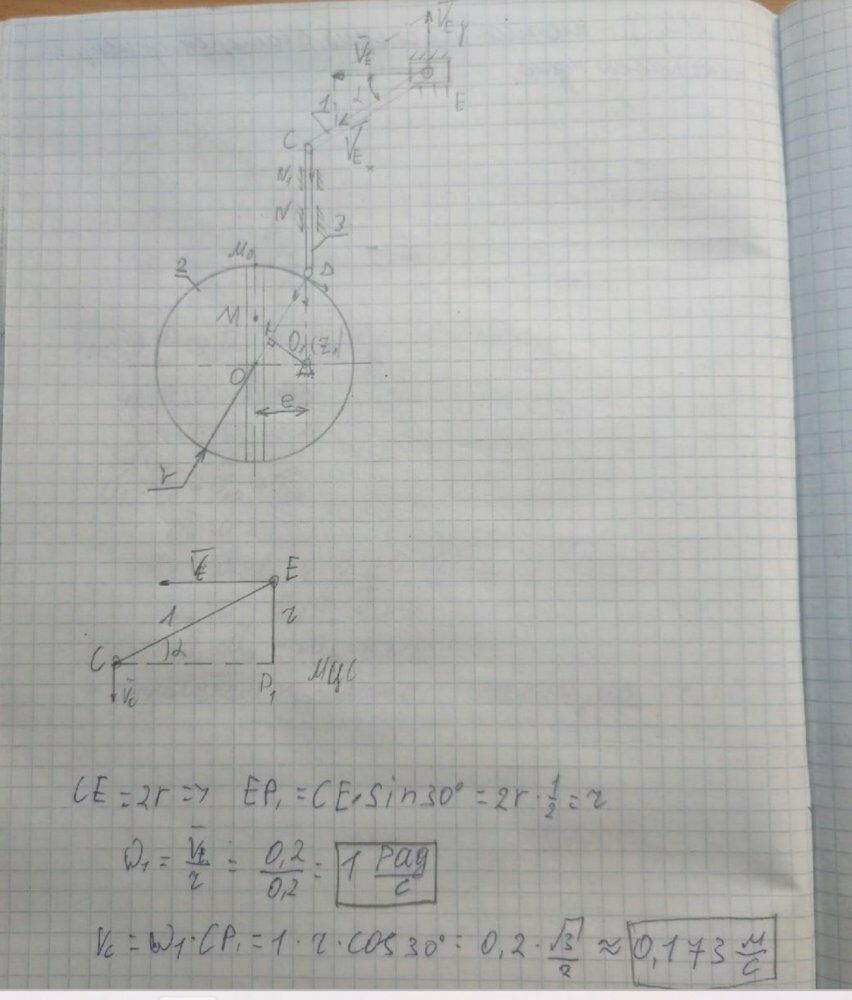 V̄E y
V̄E
E
1
α
C
V̄E x
N1
N
3
M0
D
2
M
O1(z1)
O
e
r
V̄E
E
1
r
C
α
P1
МЦС
V̄c
CE = 2r => EP1 = CE·sin30° = 2r · 1/2 = r
ω1 = V̄E/r = 0,2/0,2 = 1 рад/с
Vc = ω1·CP1 = 1·r·cos30° = 0,2 · √3/2 ≈ 0,173 м/с